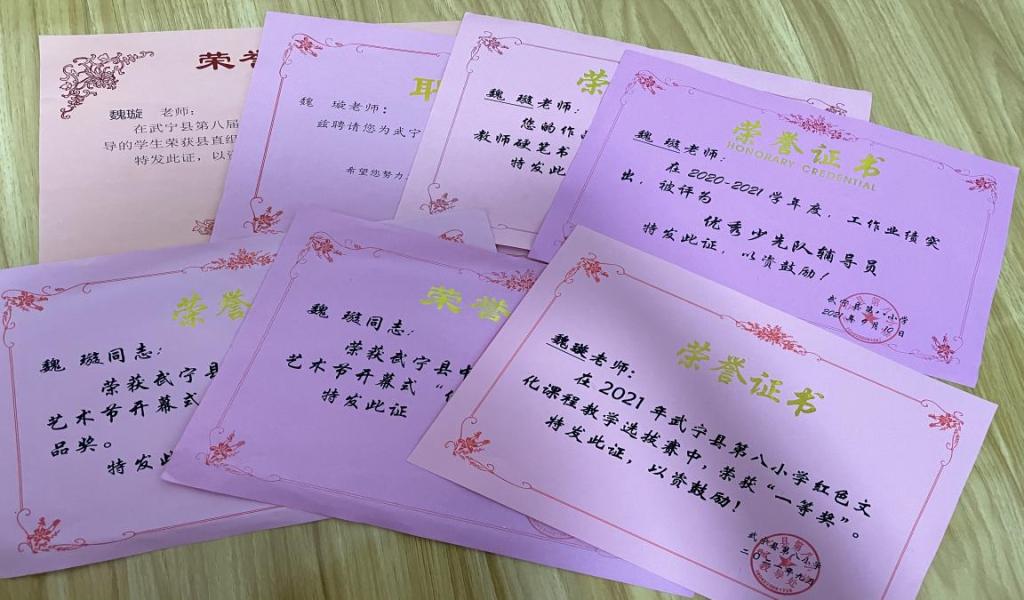 荣誉
魏璇 老师:
在武宁县第八届
导的学生荣获县直组
特发此证,以资
魏 璇老师:
兹聘请您为武宁
希望您努力
荣
魏 璇老师:
您的作品
教师硬笔书
特发此证
荣誉证书
HONORARY CREDENTIAL
魏 璇老师:
在2020-2021学年度,工作业绩突
出,被评为
优秀少先队辅导员
特发此证,以资鼓励!
武宁县第八小学
2021年9月10日
荣誉
魏 璇同志:
荣获武宁县
艺术节开幕式
品奖。
特发此
荣誉
魏 璇同志:
荣获武宁县
艺术节开幕式“
特发此证
荣誉证书
魏璇老师:
在2021年武宁县第八小学红色文
化课程教学选拔赛中,荣获“一等奖”。
特发此证,以资鼓励!
武宁县第八小学
教导处